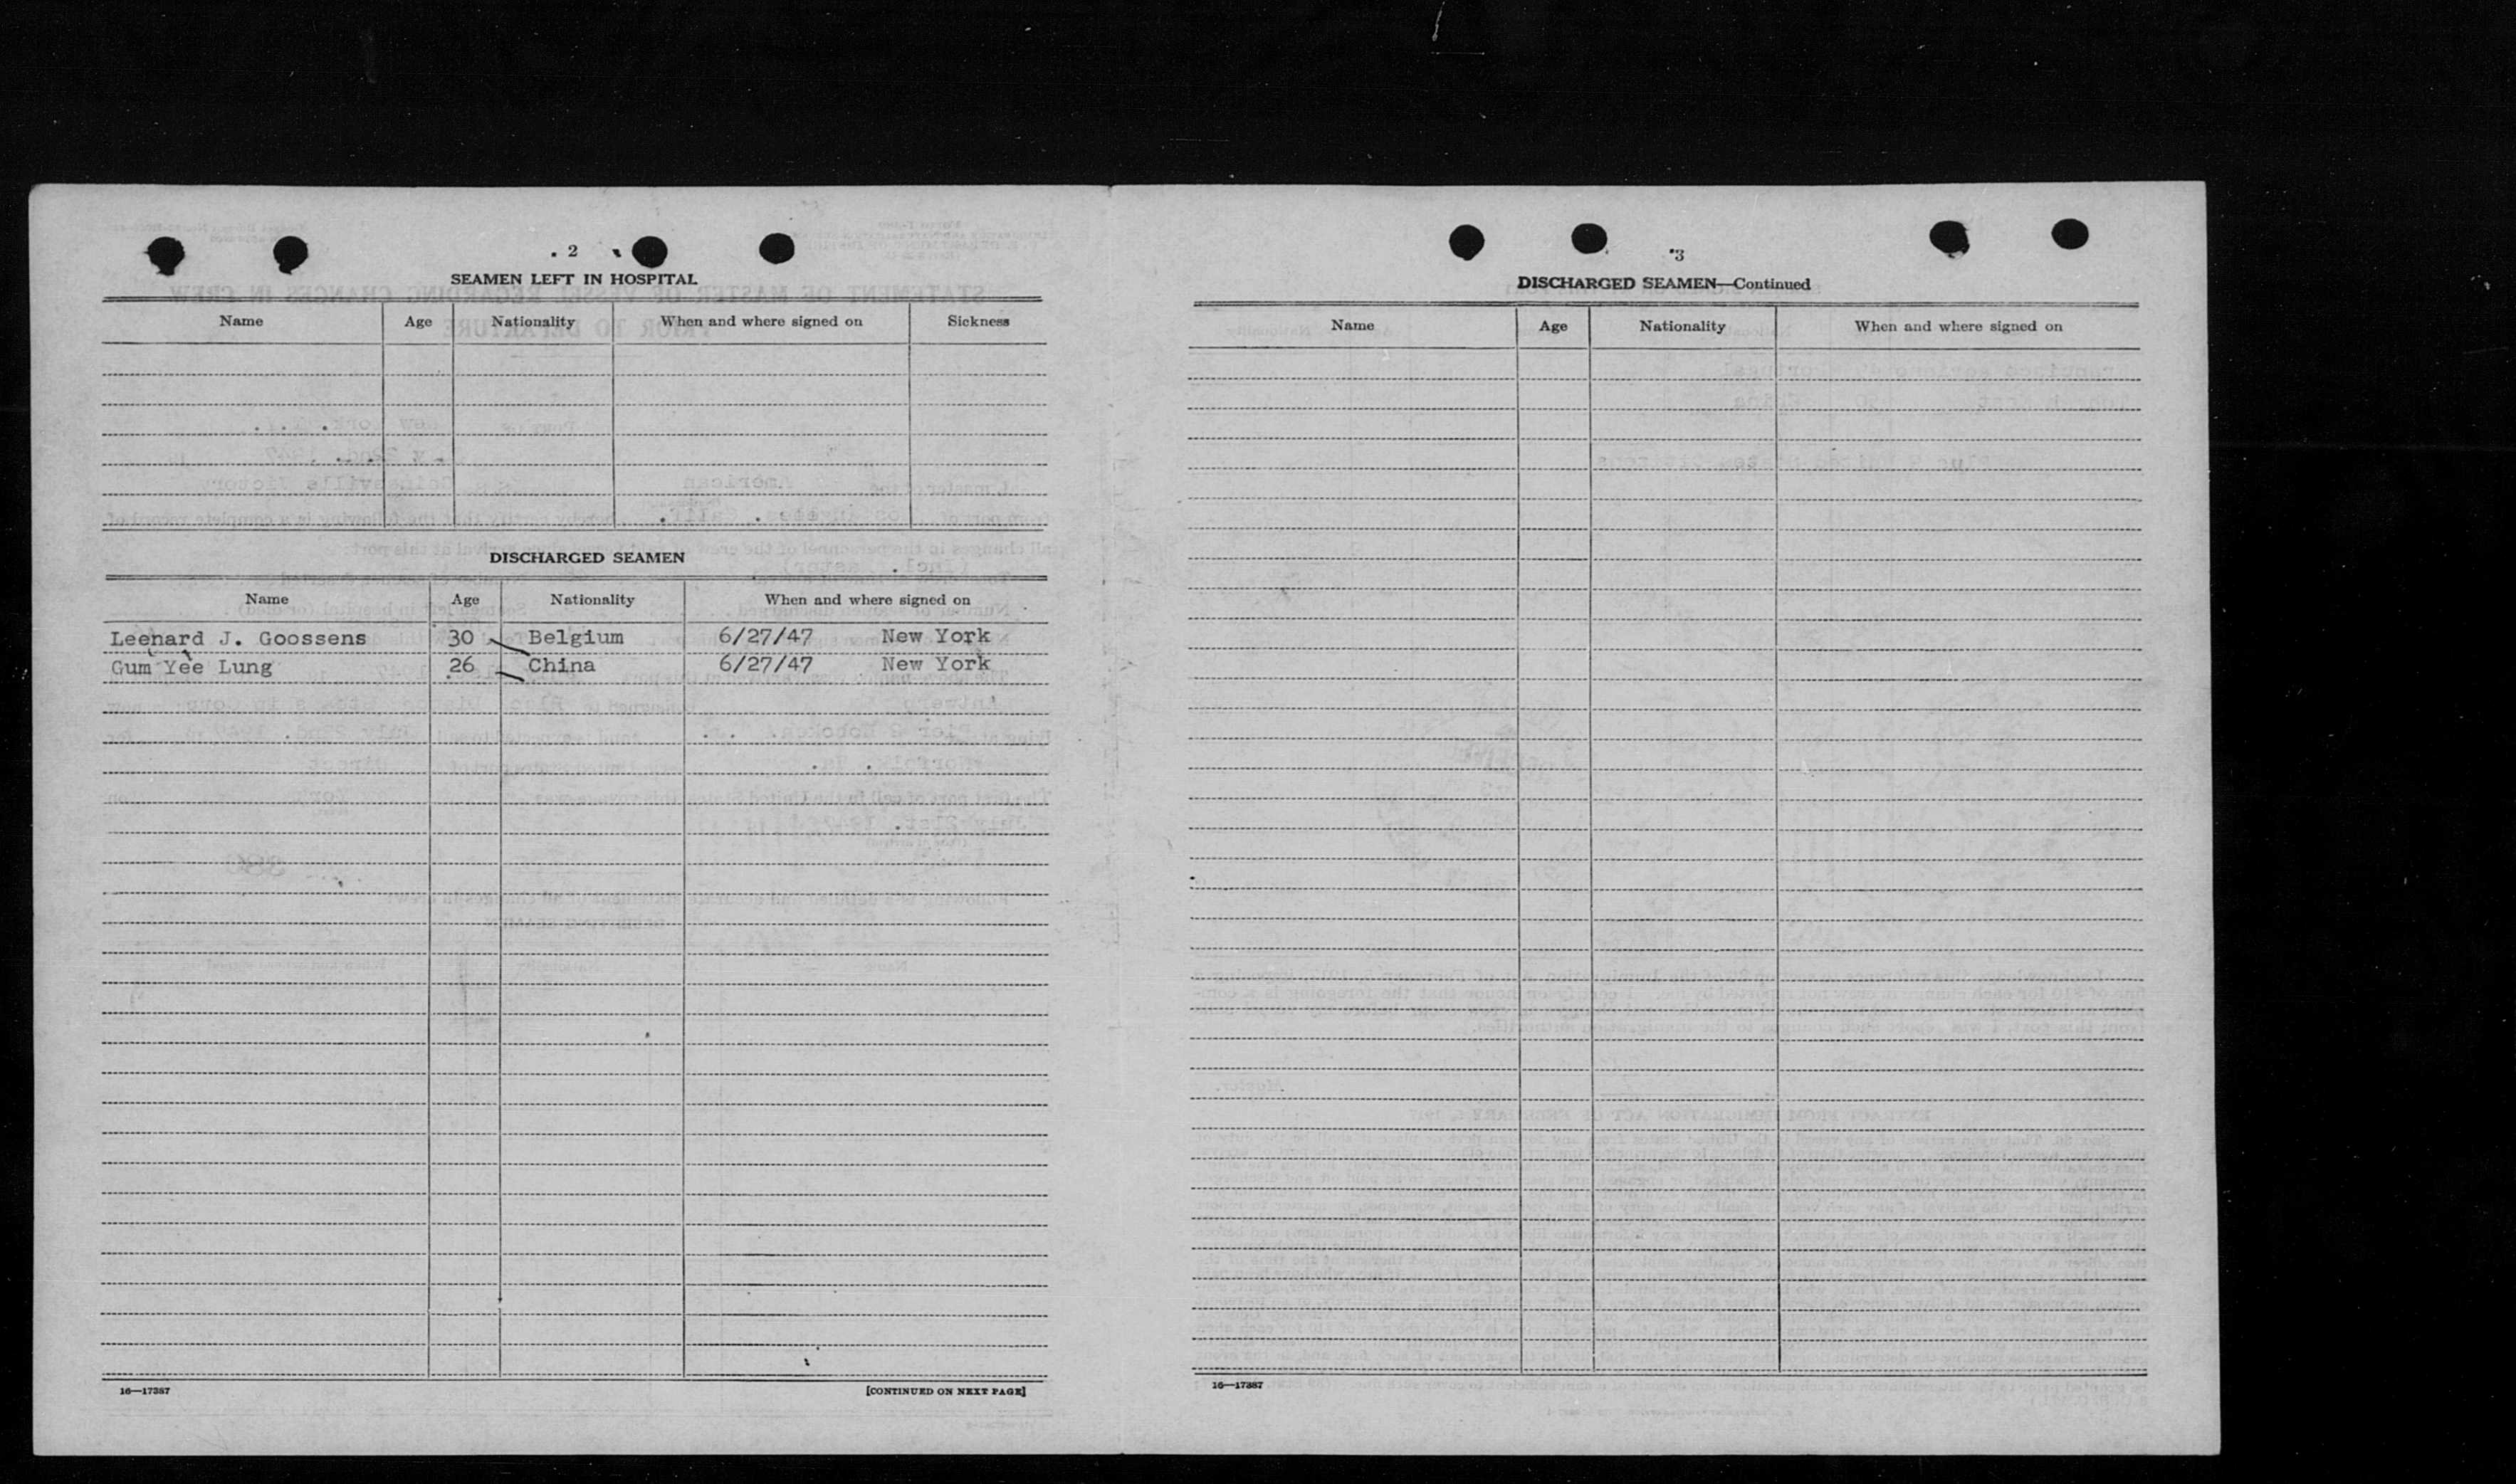 2
SEAMEN LEFT IN HOSPITAL
Name Age Nationality When and where signed on Sickness
DISCHARGED SEAMEN
Name Age Nationality When and where signed on
Leenard J. Goossens 30 Belgium 6/27/47 New York
Gum Yee Lung 26 China 6/27/47 New York
16—17387 [CONTINUED ON NEXT PAGE]
3
DISCHARGED SEAMEN—Continued
Name Age Nationality When and where signed on
16—17387